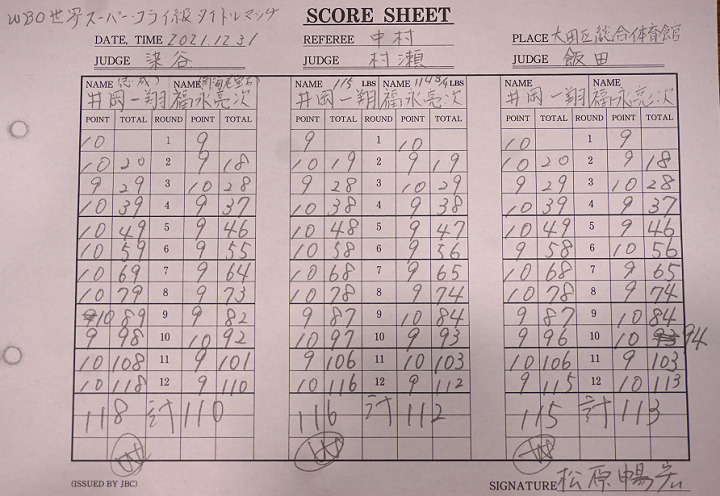 WBO世界スーパーフライ級タイトルマッチ
SCORE SHEET
DATE, TIME 2021.12.31 REFEREE 中村 PLACE 大田区総合体育館
JUDGE 染谷 JUDGE 村瀬 JUDGE 飯田
NAME (志成) NAME NAME 115 LBS NAME 114 3/4 LBS NAME NAME
井岡一翔 福永亮次 井岡一翔 福永亮次 井岡一翔 福永亮次
POINT TOTAL ROUND POINT TOTAL POINT TOTAL ROUND POINT TOTAL POINT TOTAL ROUND POINT TOTAL
10 1 9 9 1 10 10 1 9
10 20 2 9 18 10 19 2 9 19 10 20 2 9 18
9 29 3 10 28 9 28 3 10 29 9 29 3 10 28
10 39 4 9 37 10 38 4 9 38 10 39 4 9 37
10 49 5 9 46 10 48 5 9 47 10 49 5 9 46
10 59 6 9 55 10 58 6 9 56 9 58 6 10 56
10 69 7 9 64 10 68 7 9 65 10 68 7 9 65
10 79 8 9 73 10 78 8 9 74 10 78 8 9 74
10 89 9 9 82 9 87 9 10 84 9 87 9 10 84
9 98 10 10 92 10 97 10 9 93 9 96 10 10 94
10 108 11 9 101 9 106 11 10 103 10 106 11 9 103
10 118 12 9 110 10 116 12 9 112 9 115 12 10 113
118 計 110 116 計 112 115 計 113
W W W
(ISSUED BY JBC) SIGNATURE 松原暢宏